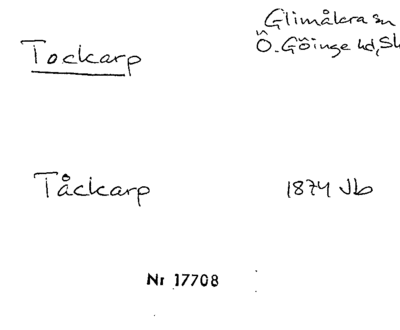 Glimåkra sn
Tockarp
Ö. Göinge hd, Sk
Tåckarp 1874 Jb
Nr 17708